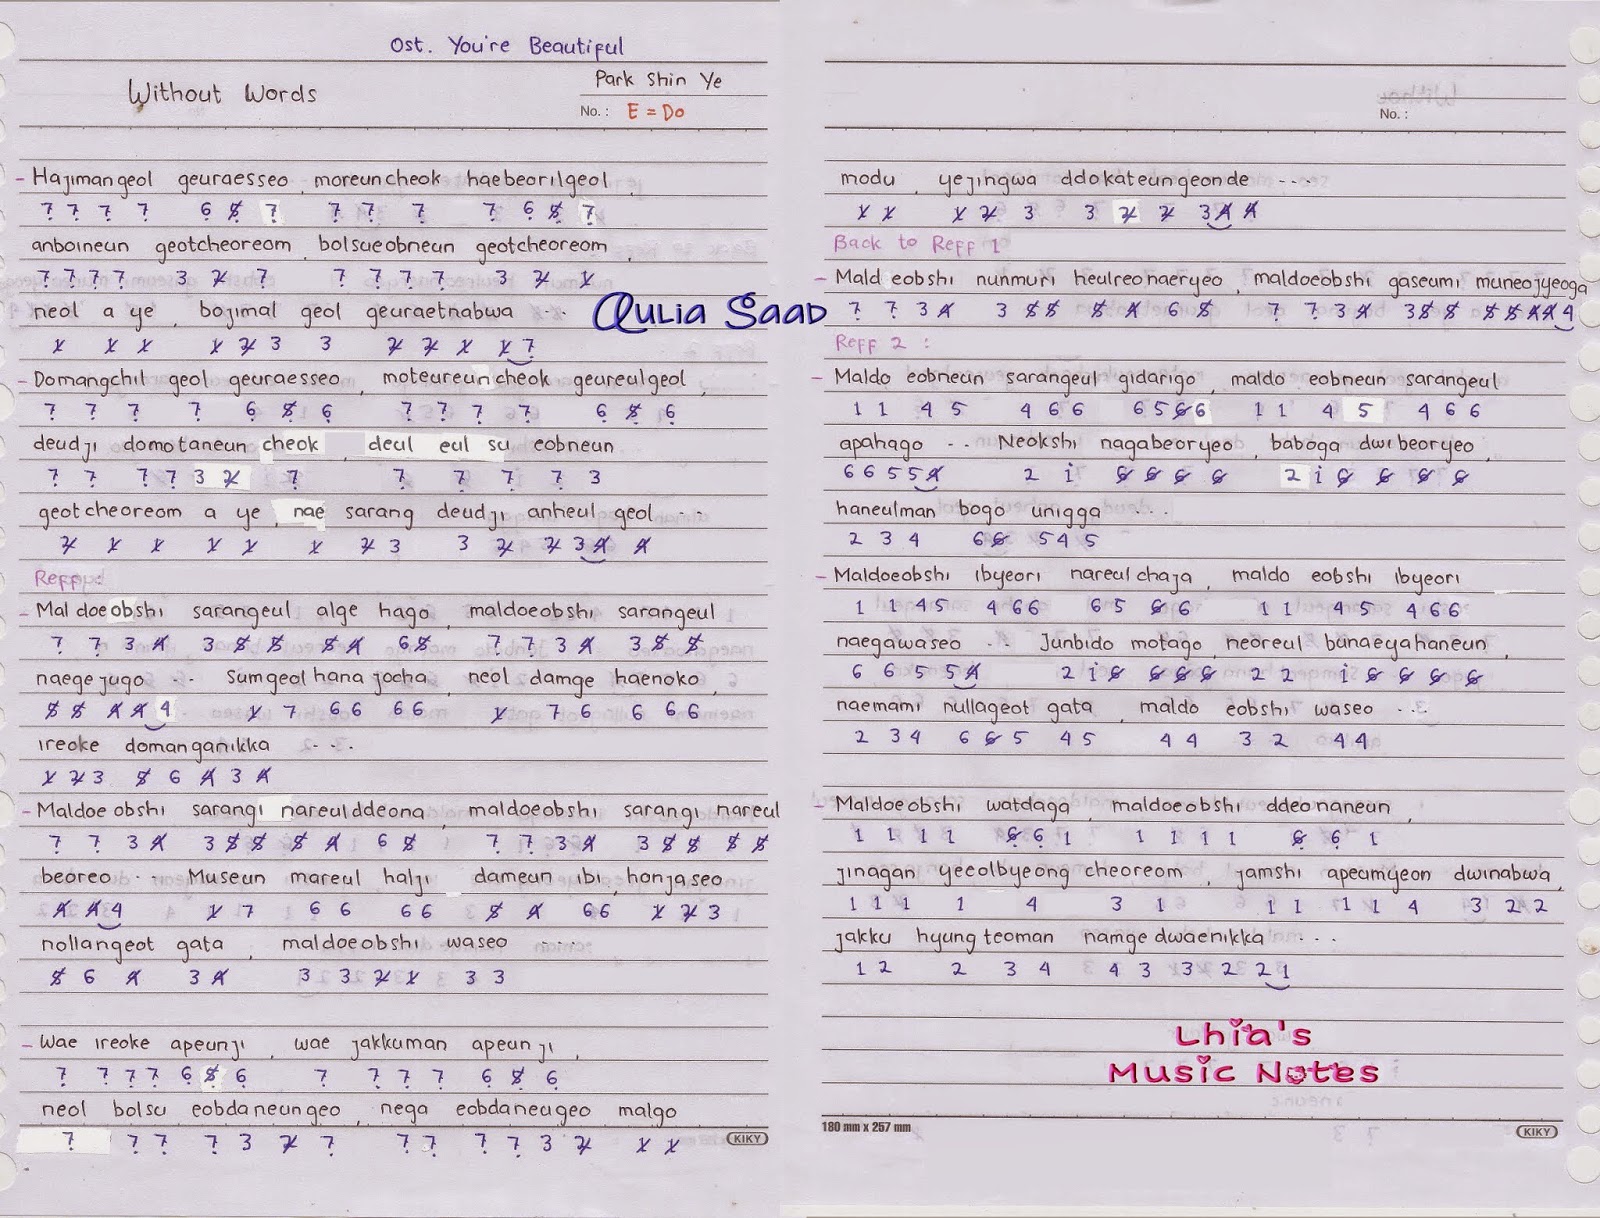 Ost. You're Beautiful
Without Words
Park Shin Ye
No. : E = Do
- Hajimangeol geuraesseo, moreuncheok haebeorilgeol,
7 7 7 7 6 5 7 7 7 7 7 6 5 7
anboineun geotcheoreom, bolsueobneun geotcheoreom,
7 7 7 7 3 2 7 7 7 7 7 3 2 1
neol a ye, bojimal geol geuraetnabwa ...
1 1 1 1 2 3 3 2 2 1 1 7
- Domangchil geol geuraesseo, moteureuncheok geureulgeol,
7 7 7 7 6 5 6 7 7 7 7 6 5 6
deudji domotaneun cheok, deul eul su eobneun
7 7 7 7 3 2 7 7 7 7 7 3
geotcheoreom a ye, nae sarang deudji anheul geol ...
2 1 1 1 1 1 2 3 3 2 2 3 4 4
Reff :
- Maldoeobshi sarangeul alge hago, maldoeobshi sarangeul
7 7 3 4 3 5 5 5 4 6 5 7 7 3 4 3 5 5
naegejugo ... Sumgeol hana jocha, neol damge haenoko,
5 5 4 4 4 1 7 6 6 6 6 1 7 6 6 6 6
ireoke domanganikka ....
1 2 3 5 6 4 3 4
- Maldoeobshi sarangi nareulddeona, maldoeobshi sarangi nareul
7 7 3 4 3 5 5 5 4 6 5 7 7 3 4 3 5 5 5 5
beoreo ... Museun mareul halji dameun ibi, honjaseo
4 4 4 1 7 6 6 6 6 5 4 6 6 1 2 3
nollangeot gata, maldoeobshi waseo ....
5 6 4 3 4 3 3 2 1 3 3
- Wae ireoke apeunji, wae jakkuman apeunji,
7 7 7 7 6 5 6 7 7 7 7 6 5 6
neol bolsu eobdaneungeo, nega eobdaneugeo malgo
7 7 7 7 3 2 7 7 7 7 7 3 2 1 1
KIKY
Qulia Saad
No. :
modu, yejingwa ddokateungeonde ....
1 1 1 2 3 3 2 2 3 4 4
Back to Reff 1
- Maldeobshi nunmuri heulreonaeryeo, maldoeobshi gaseumi muneojyeoga
7 7 3 4 3 5 5 5 4 6 5 7 7 3 4 3 5 5 5 5 4 4 4
Reff 2 :
- Maldo eobneun sarangeul gidarigo, maldo eobneun sarangeul
1 1 4 5 4 6 6 6 5 6 6 1 1 4 5 4 6 6
apahago ... Neokshi nagabeoryeo, baboga dwibeoryeo,
6 6 5 5 4 2 i 6 6 6 6 2 i 6 6 6 6
haneulman bogo unigga ...
2 3 4 6 6 5 4 5
- Maldoeobshi ibyeori nareul chaja, maldo eobshi ibyeori
1 1 4 5 4 6 6 6 5 6 6 1 1 4 5 4 6 6
naegawaseo ... Junbido motago, neoreul bunaeyahaneun,
6 6 5 5 4 2 i 6 6 6 6 2 2 i 6 6 6 6
naemami nullageot gata, maldo eobshi waseo ...
2 3 4 6 6 5 4 5 4 4 3 2 4 4
- Maldoeobshi watdaga, maldoeobshi ddeonaneun,
1 1 1 1 6 6 1 1 1 1 1 6 6 1
jinagan yeeolbyeong cheoreom, jamshi apeumyeon dwinabwa,
1 1 1 1 4 3 1 1 1 1 1 4 3 2 2
jakku hyungteoman namgedwaenikka ...
1 2 2 3 4 4 3 3 2 2 1
Lhia's
Music Notes
180 mm x 257 mm
KIKY